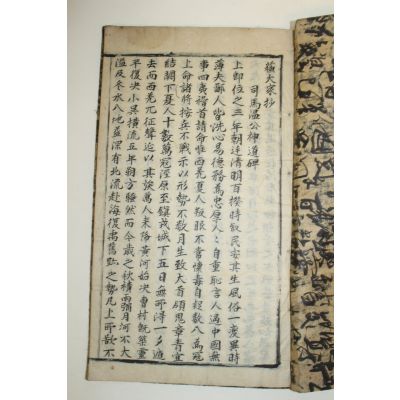 蘓大家抄
司馬温公神道碑
上即位之三年朝廷清明百揆時叙民安其生風俗一變異時
薄夫鄙人皆洗心易德務為忠厚人人自重耻言人過中國無
事四夷稽首請命惟西羌夏人叛服不常懷毒自疑數入為冦
上命諸將按兵不戰示以形勢不數月生致大首領鬼章青宜
結闕下夏人十數萬冦涇原至鎮戎城下五日無所得一夕遁
去而西羌兀征聲延以其族萬人來降黃河始决曹村既築靈
平復决小吳橫流五年朔方騷然而今歲之秋積雨彌月河不大
溢及冬水入地益深有北流赴海復禹舊迹之勢凡上所欲不